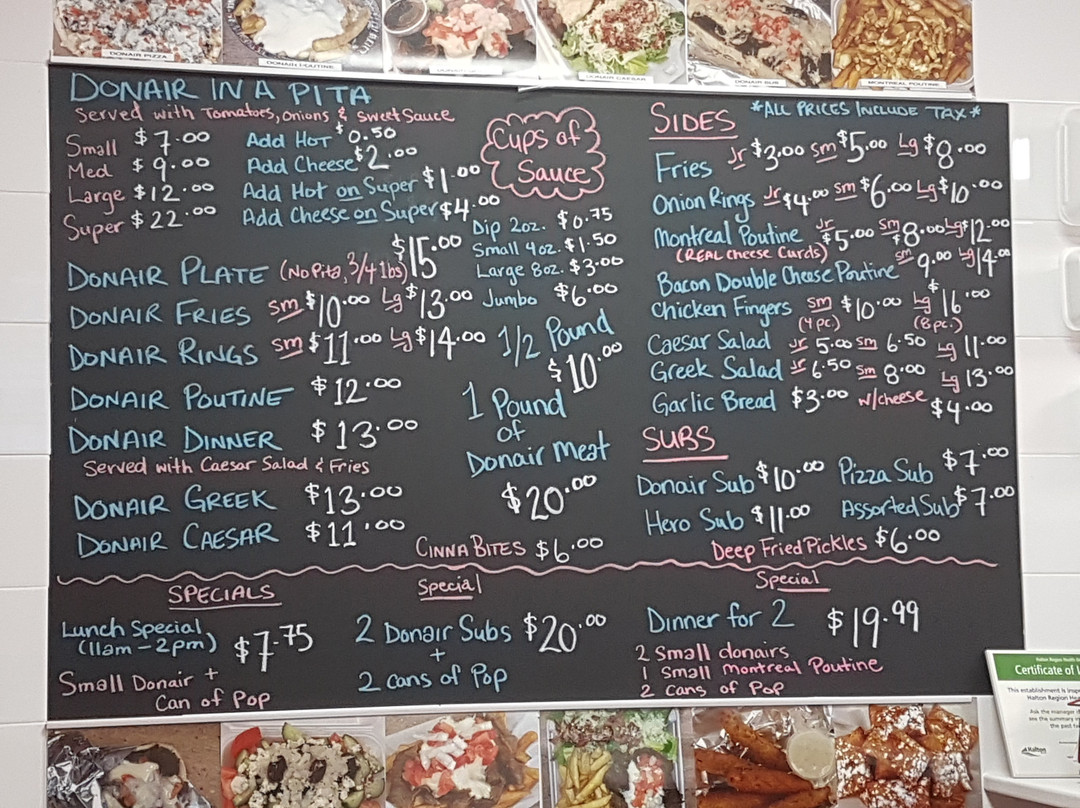 DONAIR PIZZA
DONAIR POUTINE
DONAIR CAESAR
DONAIR SUB
MONTREAL POUTINE
DONAIR IN A PITA
Served with Tomatoes, Onions & Sweet Sauce
Small $7.00
Med $9.00
Large $12.00
Super $22.00
Add Hot $0.50
Add Cheese $2.00
Add Hot on Super $1.00
Add Cheese on Super $4.00
DONAIR PLATE (No Pita, 3/4 lbs) $15.00
DONAIR FRIES sm $10.00 Lg $13.00
DONAIR RINGS sm $11.00 Lg $14.00
DONAIR POUTINE $12.00
DONAIR DINNER $13.00
Served with Caesar Salad & Fries
DONAIR GREEK $13.00
DONAIR CAESAR $11.00
Cups of
Sauce
Dip 2oz. $0.75
Small 4oz. $1.50
Large 8oz. $3.00
Jumbo $6.00
1/2 Pound
$10.00
1 Pound
of
Donair Meat
$20.00
CINNA BITES $6.00
*ALL PRICES INCLUDE TAX*
SIDES
Fries Jr $3.00 sm $5.00 Lg $8.00
Onion Rings Jr $4.00 sm $6.00 Lg $10.00
Montreal Poutine Jr $5.00 sm $8.00 Lg $12.00
(REAL cheese Curds)
Bacon Double Cheese Poutine sm 9.00 Lg 14.00
Chicken Fingers sm $10.00 Lg $16.00
(4pc.) (8pc.)
Caesar Salad Jr 5.00 sm 6.50 Lg 11.00
Greek Salad Jr 6.50 sm 8.00 Lg 13.00
Garlic Bread $3.00 w/cheese $4.00
SUBS
Donair Sub $10.00 Pizza Sub $7.00
Hero Sub $11.00 Assorted Sub $7.00
Deep Fried Pickles $6.00
SPECIALS
Lunch Special
(11am - 2pm) $7.75
Small Donair +
Can of Pop
Special
2 Donair Subs $20.00
+
2 cans of Pop
Special
Dinner for 2 $19.99
2 Small donairs
1 Small montreal Poutine
2 Cans of Pop
Certificate of
This establishment is
Halton Region
Ask the manager
see the summary
the past
Halton